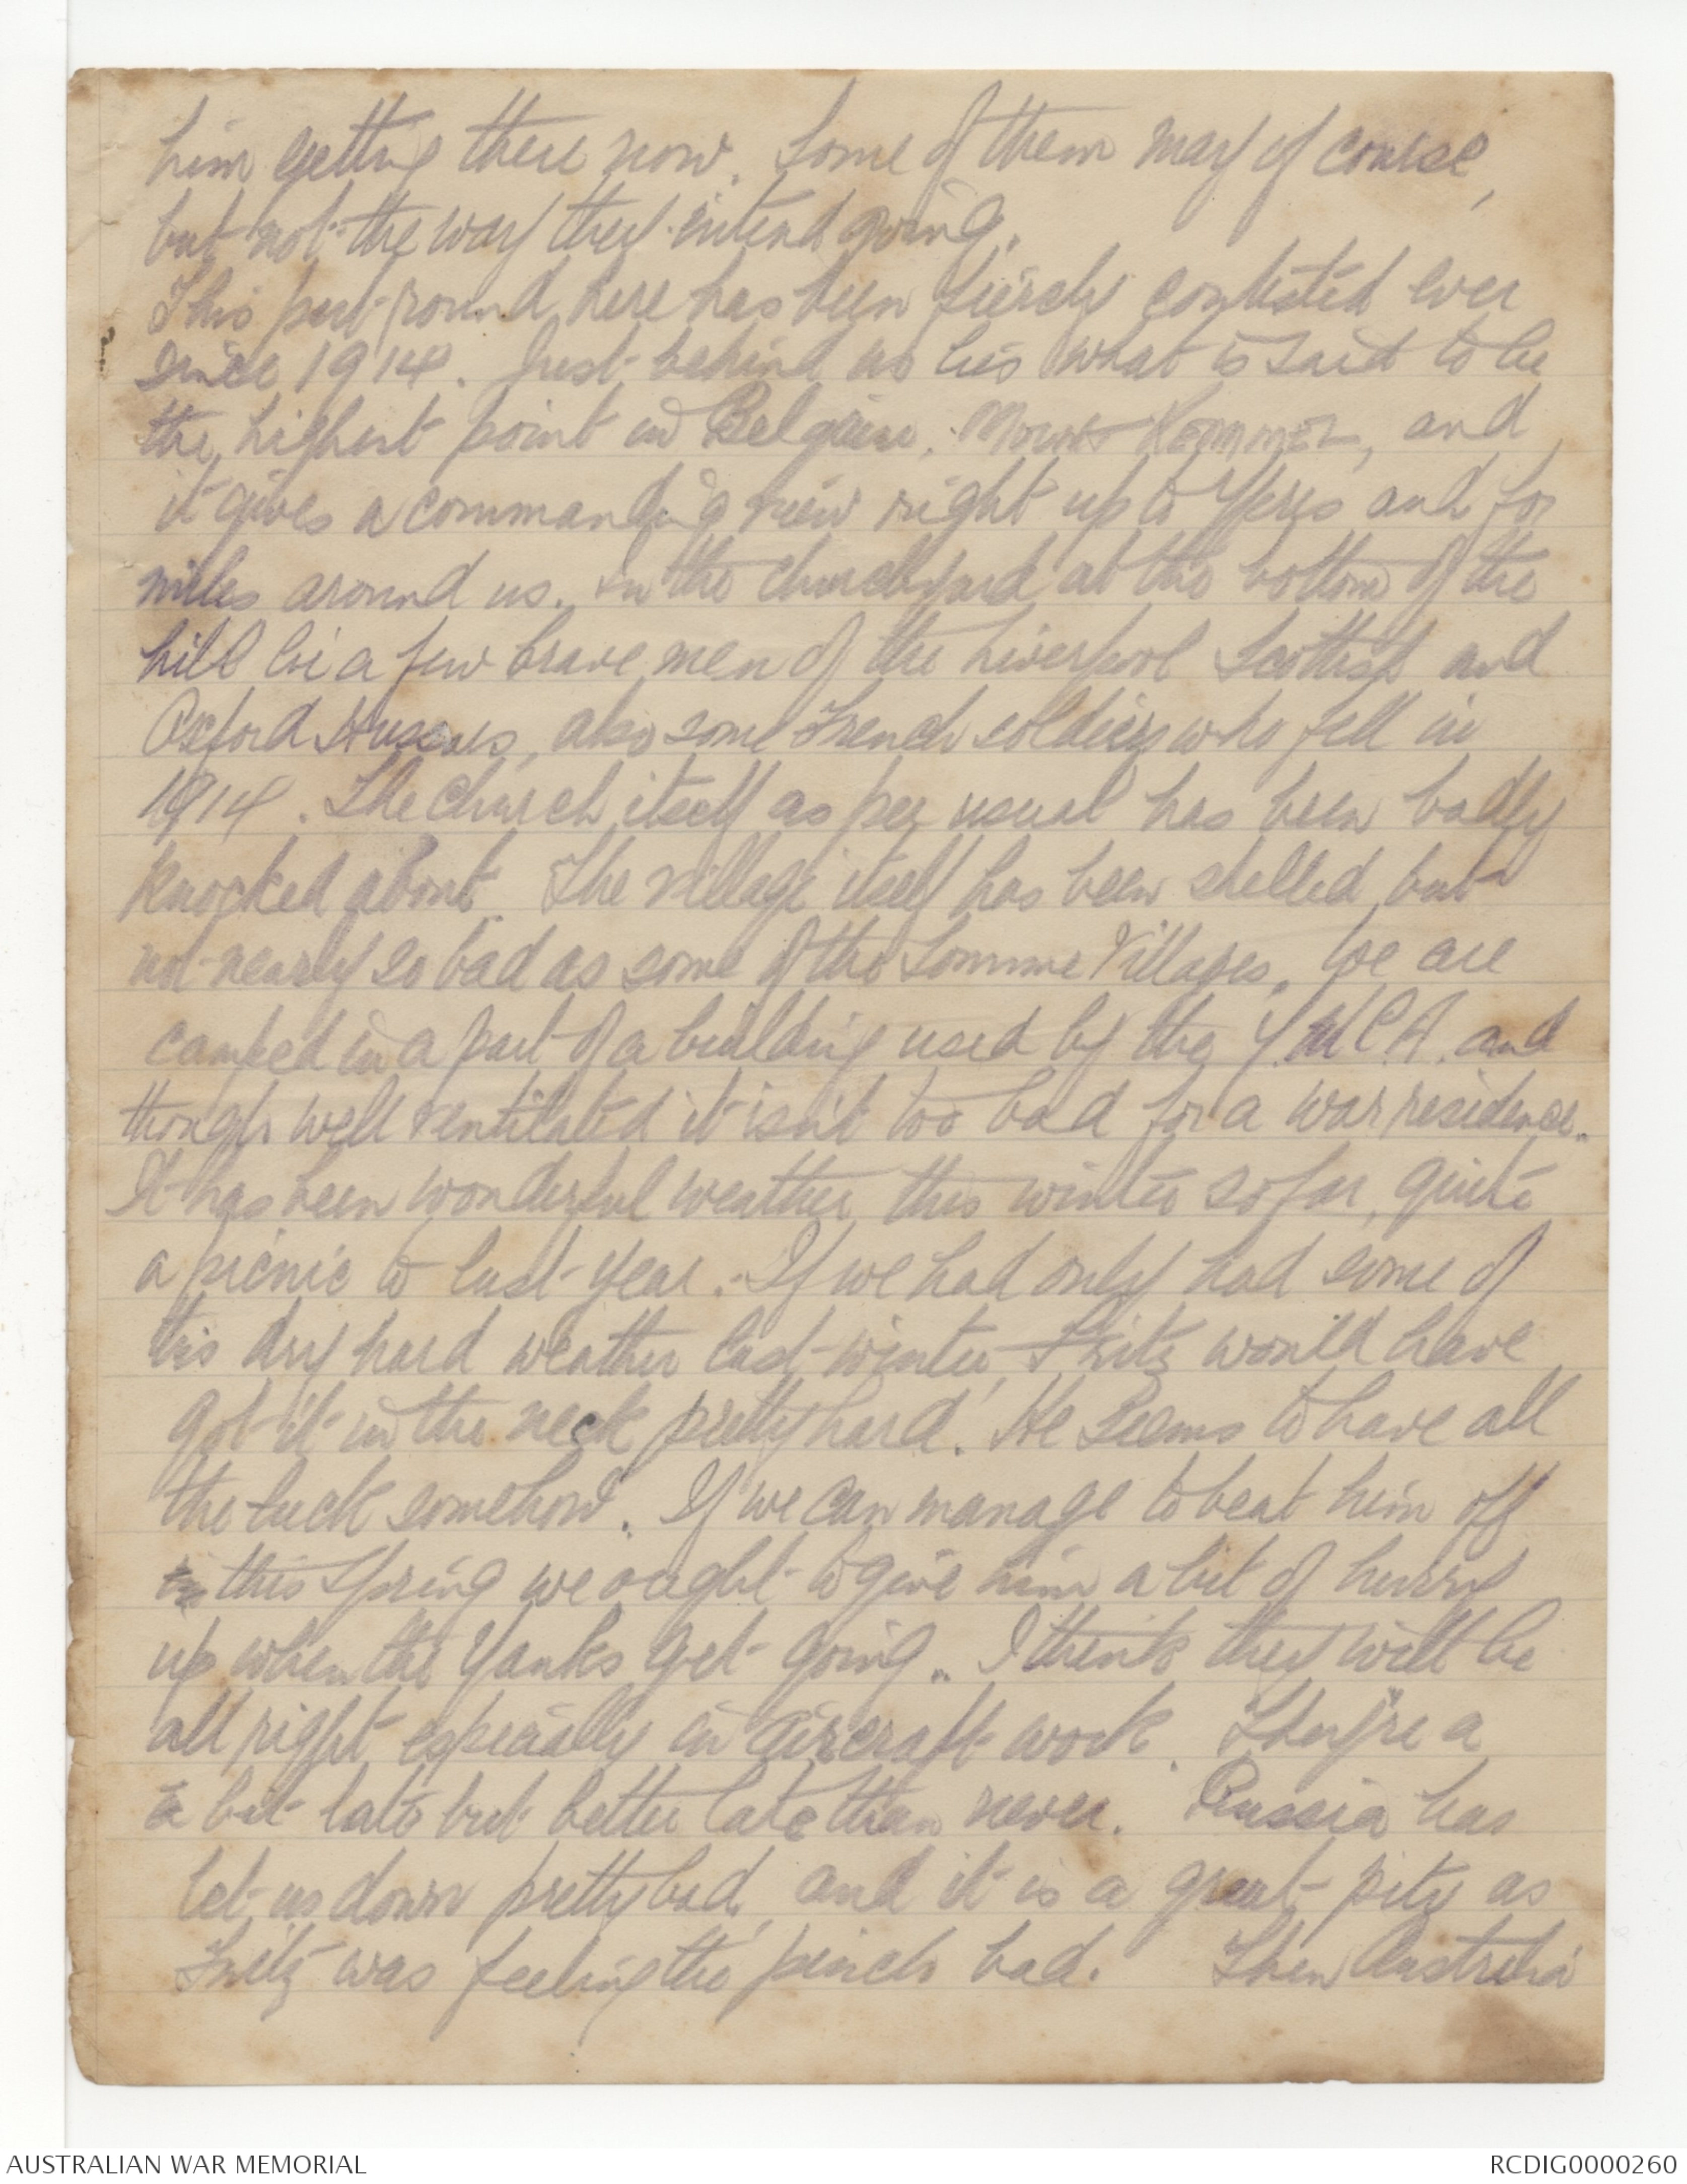 him getting there now. Some of them may of course,
but not the way they intend going.
This part round here has been fiercely contested ever
since 1914. Just behind us lies what is said to be
the highest point in Belgium, Mount Kemmel, and
it gives a commanding view right up to Ypres and for
miles around us. In the churchyard at the bottom of the
hill lie a few brave men of the Liverpool Scottish and
Oxford Hussars, also some French soldiers who fell in
1914. The Church itself as per usual has been badly
knocked about. The village itself has been shelled but
not nearly so bad as some of the Somme Villages. We are
camped in a part of a building used by the Y.M.C.A. and
though well ventilated it isn't too bad for a war residence.
It has been wonderful weather this winter so far, quite
a picnic to last year. If we had only had some of
this dry hard weather last winter, Fritz would have
got it in the neck pretty hard. He seems to have all
the luck somehow. If we can manage to beat him off
this Spring we ought to give him a bit of hurry
up when the Yanks get going. I think they will be
all right especially in aircraft work. They're a
a bit late but better late than never. Russia has
let us down pretty bad, and it is a great pity as
Fritz was feeling the pinch bad. Then Australia
AUSTRALIAN WAR MEMORIAL
RCDIG0000260